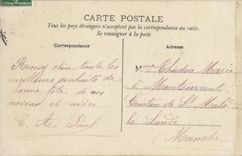 CARTE POSTALE
Tous les pays étrangers n'acceptent pas la correspondance au recto,
Se renseigner à la poste
Correspondance
Adresse
tante les
meilleurs souhaits de
bonne fête de vos
neveux et nièce
E. A. Paul
Mme Théodore Marie
à Montsurvent
Canton de St Malo
la Lande
Manche